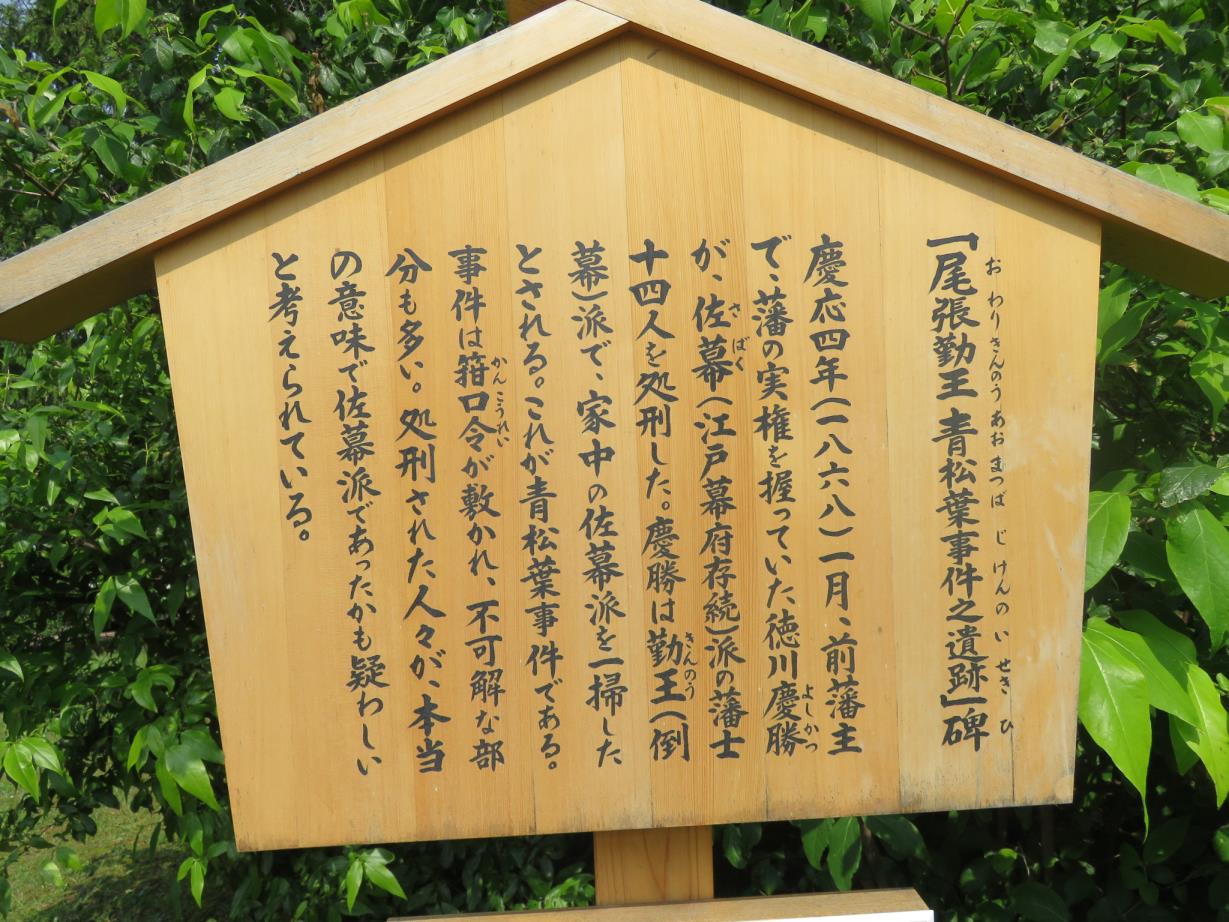 「尾張勤王 青松葉事件之遺跡」碑
おわりきんのうあおまつば じけんのいせき ひ
慶応四年（一八六八）一月、前藩主
で、藩の実権を握っていた徳川慶勝
よしかつ
が、佐幕（江戸幕府存続）派の藩士
さばく
十四人を処刑した。慶勝は勤王（倒
きんのう
幕）派で、家中の佐幕派を一掃した
とされる。これが青松葉事件である。
事件は箝口令が敷かれ、不可解な部
かんこうれい
分も多い。処刑された人々が、本当
の意味で佐幕派であったかも疑わしい
と考えられている。